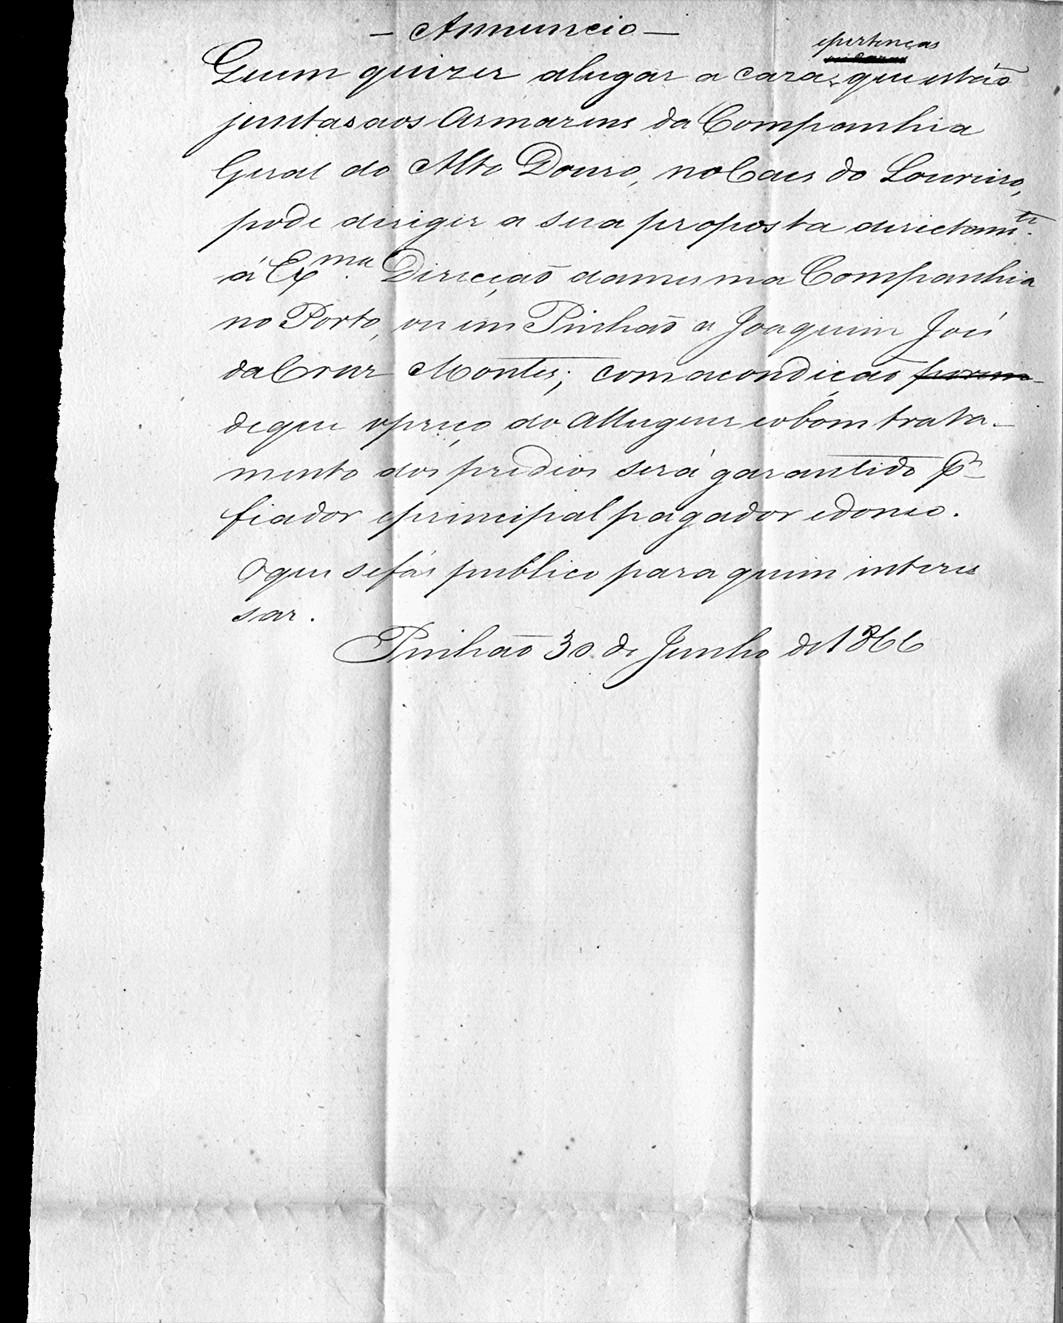 — Annuncio —
epertenças
Quem quizer alugar a caza, que estão
juntas aos Armazens da Companhia
Geral do Alto Douro, no Caes do Loureiro,
pode dirigir a sua proposta directamte.
á Exma. Direcção da mesma Companhia
no Porto, ou em Pinhão a Joaquim José
da Cruz Montes; com a condição porem
de que o preço do Alluguer e o bom trata-
mento dos predios será garantido Pr.
fiador e principal pagador idoneo.
O que se fás publico para quem interes
sar.
Pinhão 30 de Junho de 1866